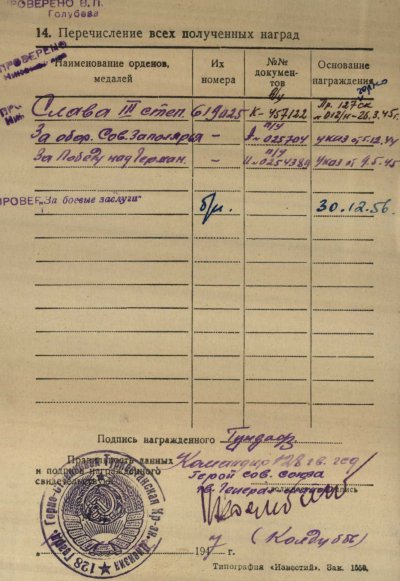 ПРОВЕРЕНО В. П.
Голубева
14. Перечисление всех полученных наград
ПРОВЕРЕНО
Наименование орденов, медалей
Их номера
№№ документов
Основание награждения
Слава III степ. 619025 К-457122 Пр. 127 ск
№ 012/н-26.3.45г.
За обор. Сов. Заполярья - п/у № 025704 указ от 5.12.44
За Победу над Герман. - п/у № 0254389 указ от 9.5.45
ПРОВЕР
"За боевые заслуги" б/н. 30.12.56.
Подпись награжденного
Правильность данных
и подписи награжденного
свидетельствую
Командир 128 гв. гсд
Герой Сов. Союза
гв. Генерал-майор
подпись
(Колдубы)
194 г.
Типография «Известий». Зак. 1550.